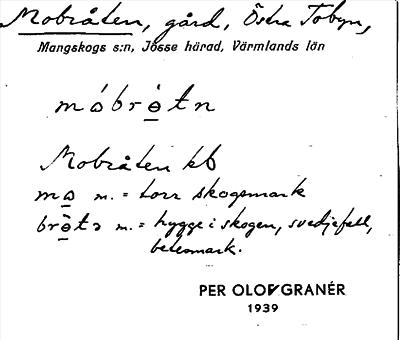 Mobråten, gård, Östra Tobyn,
Mangskogs s:n, Jösse härad, Värmlands län
móbrò̠tn
Mobråten kb
mo̠ m. = torr skogsmark
brò̠tə m. = hygge i skogen, svedjefall,
betesmark.
PER OLOF GRANÉR
1939